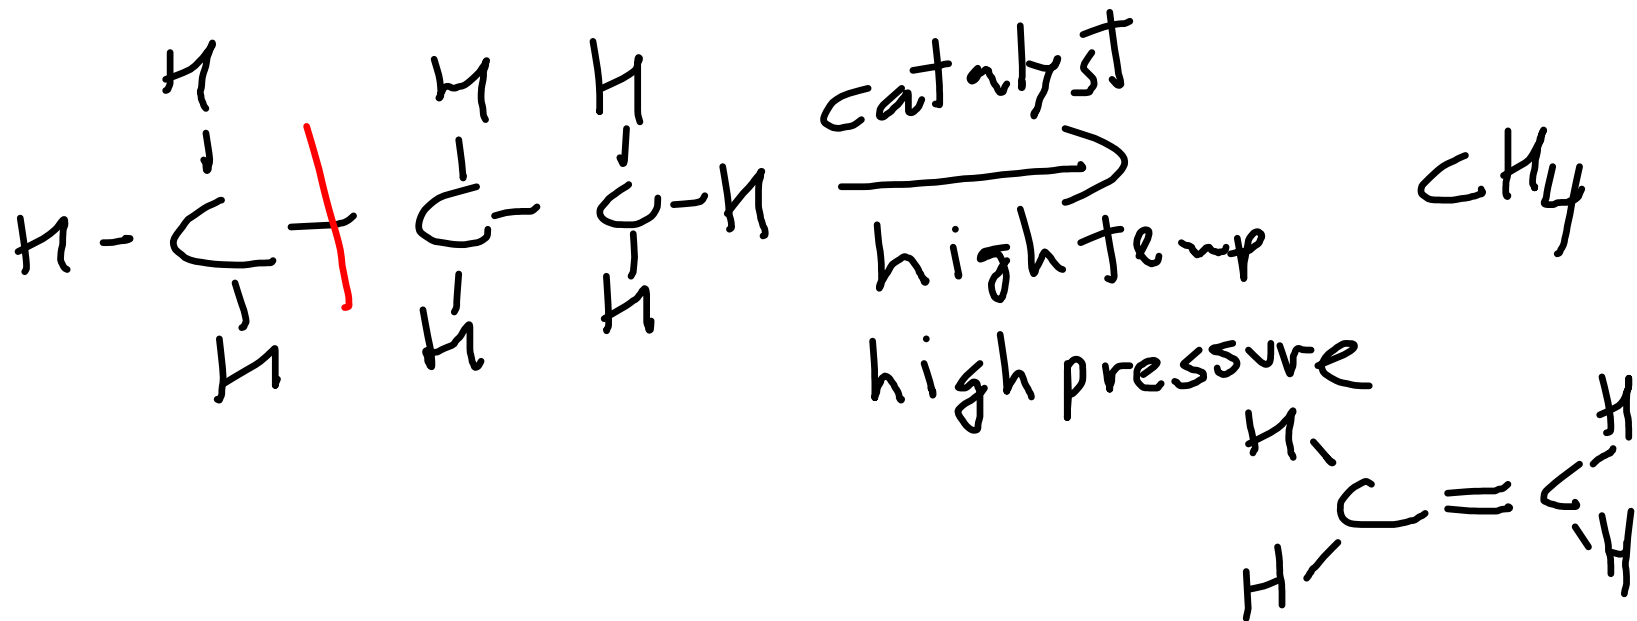 H H H
H - C - C - C - H
H H H
catalyst
high temp
high pressure
CH4
H H
C = C
H H